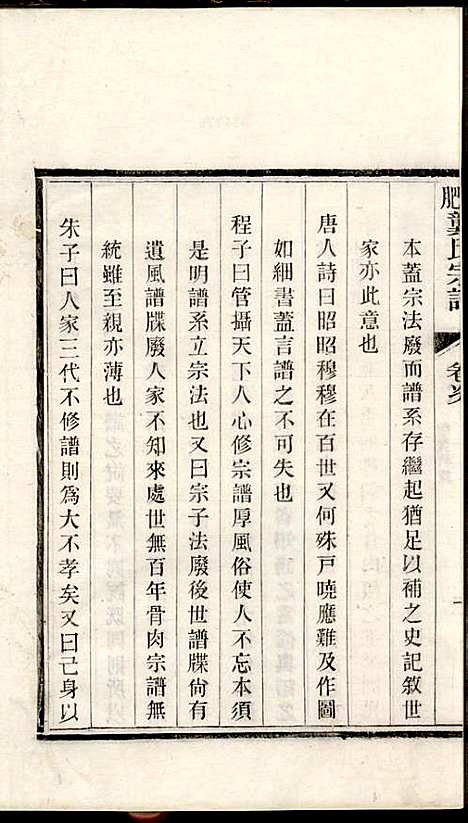 肥龔氏宗譜
卷首
本蓋宗法廢而譜系存繼起猶足以補之史記敘世
家亦此意也
唐人詩曰昭昭穆穆在百世又何殊戸曉應難及作圖
如細書蓋言譜之不可失也
程子曰管攝天下人心修宗譜厚風俗使人不忘本須
是明譜系立宗法也又曰宗子法廢後世譜牒尙有
遺風譜牒廢人家不知來處世無百年骨肉宗譜無
統雖至親亦薄也
朱子曰人家三代不修譜則爲大不孝矣又曰己身以